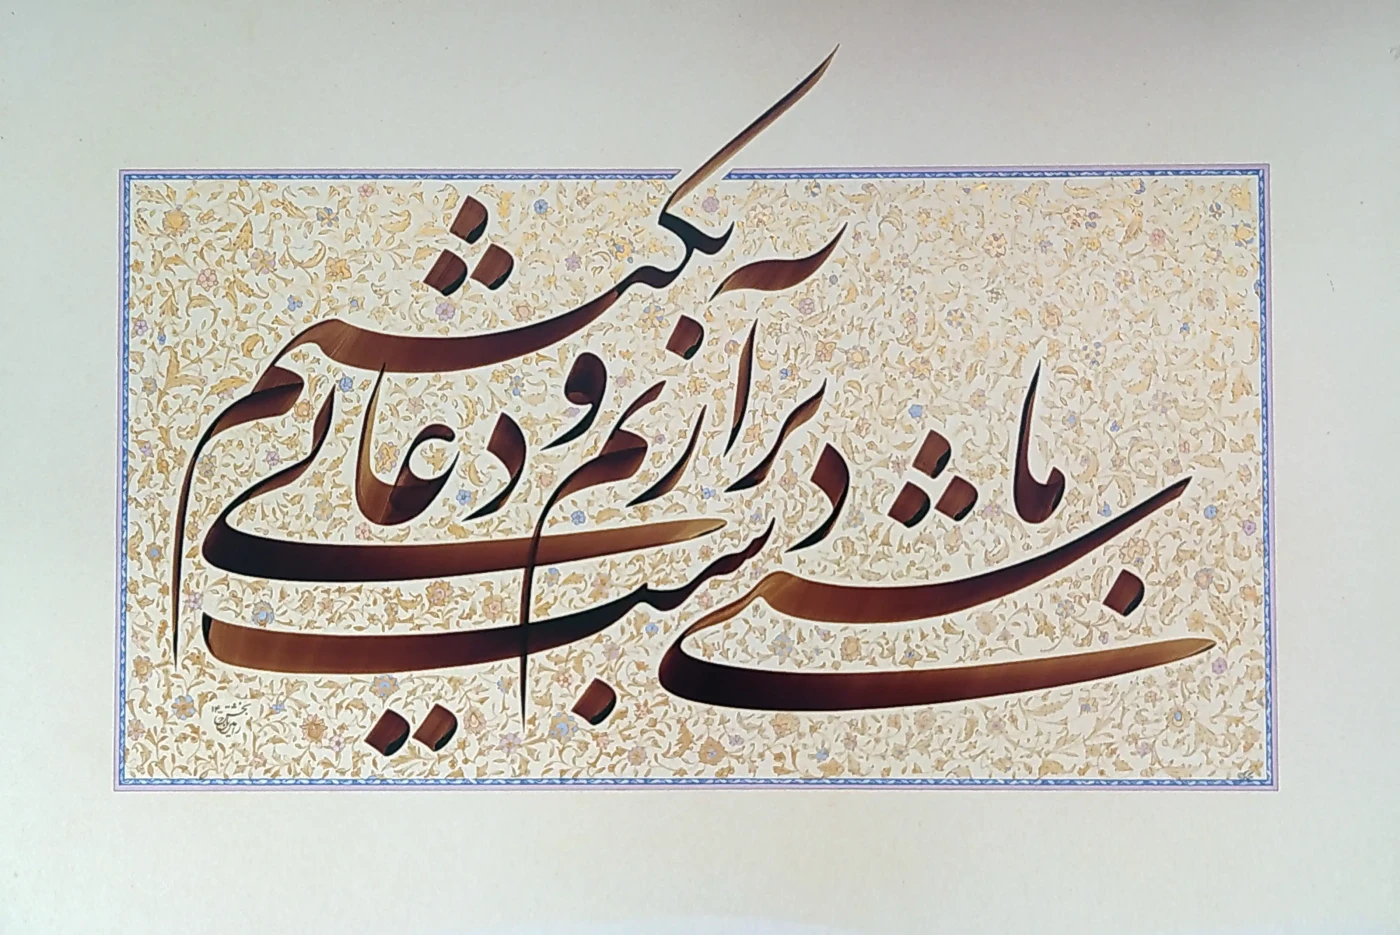 ما شبی دست برآریم و دعایی بکنیم